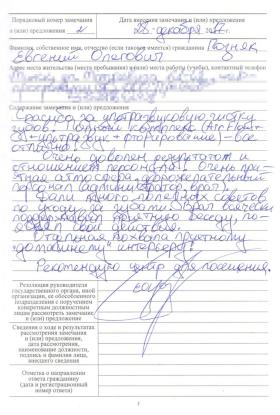 Порядковый номер замечания
и (или) предложения
Дата внесения замечания и (или) предложения
28 декабря
Фамилия, собственное имя, отчество (если таковое имеется) гражданина Позняк
Евгений Олегович
Адрес места жительства (места пребывания) и (или) места работы (учебы), контактный телефон
Содержание замечания и (или) предложения
Спасибо за ультразвуковую чистку
зубов. комплекс (Air Flow+
+ультразвук+фторирование) – все
отлично.
Очень доволен результатом и
отношением персонала! Очень при-
ятная атмосфера, доброжелательный
персонал (администратор, врач).
Дали много полезных советов
по уходу за зубами. Врач всячески
поддерживал приятную беседу, по-
свои действия.
Отдельная похвала приятному
"домашнему" интерьеру!
Рекомендую центр для посещения.
Резолюция руководителя
государственного органа, иной
организации, ее обособленного
подразделения с поручением
конкретным должностным
лицам рассмотреть замечание
и (или) предложение
Сведения о ходе и результатах
рассмотрения замечания
и (или) предложения,
дата рассмотрения,
наименование должности,
подпись и фамилия лица,
внесшего сведения
Отметка о направлении
ответа гражданину
(дата и регистрационный
номер ответа)